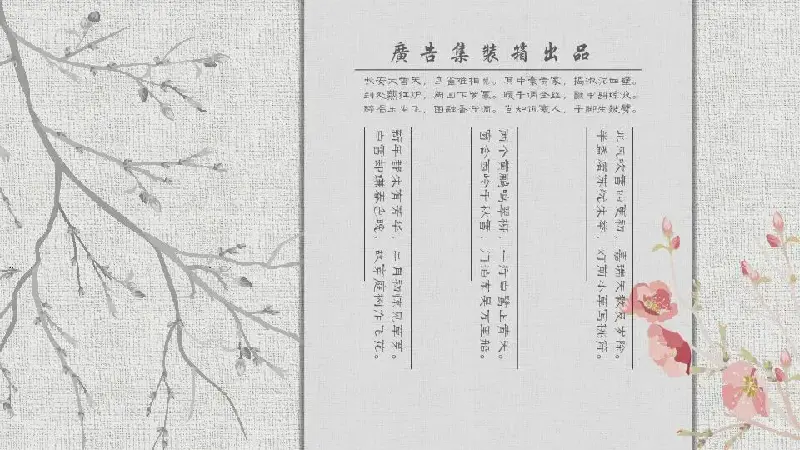 廣告集裝箱出品
长安大雪天，鸟雀难相觅。其中豪贵家，捣椒泥四壁。
到处爇红炉，周回下罗幂。暖手调金丝，蘸甲斟琼液。
醉唱玉尘飞，困融香汗滴。岂知饥寒人，手脚生皴劈。
北风吹雪四更初，嘉瑞天教及岁除。
半盏屠苏犹未举，灯前小草写桃符。
两个黄鹂鸣翠柳，一行白鹭上青天。
窗含西岭千秋雪，门泊东吴万里船。
新年都未有芳华，二月初惊见草芽。
白雪却嫌春色晚，故穿庭树作飞花。